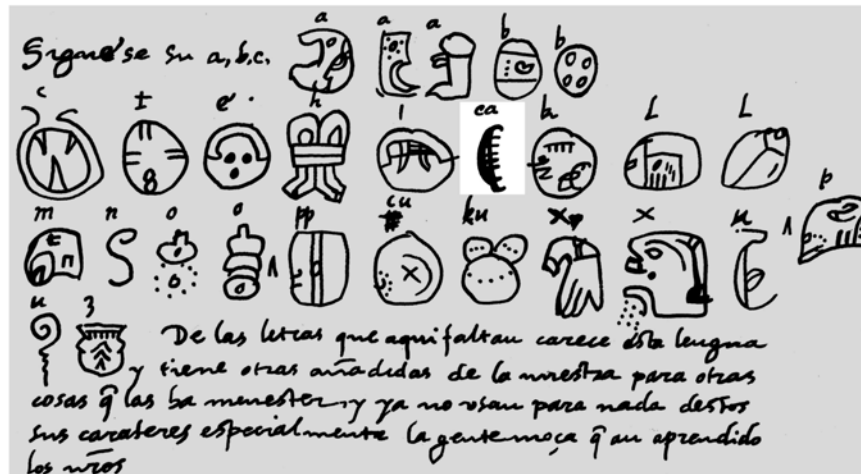 Siguese su a, b, c. a a a b b
c t e h i ca k L L
m n o o pp cu ku x x u p
u z De las letras que aqui faltan carece esta lengua
y tiene otras añadidas de la nuestra para otras
cosas q̃ las ha menester, y ya no usan para nada destos
sus carateres especialmente la gente moça q̃ an aprendido
los nr̃os